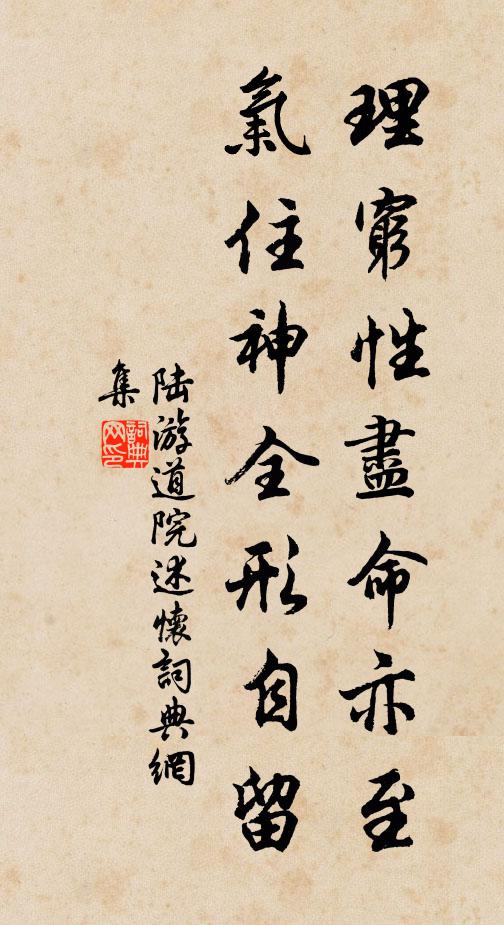 理窮性盡命亦至
氣住神全形自留
陆游道院述懷詞典網
集
詞典
网印